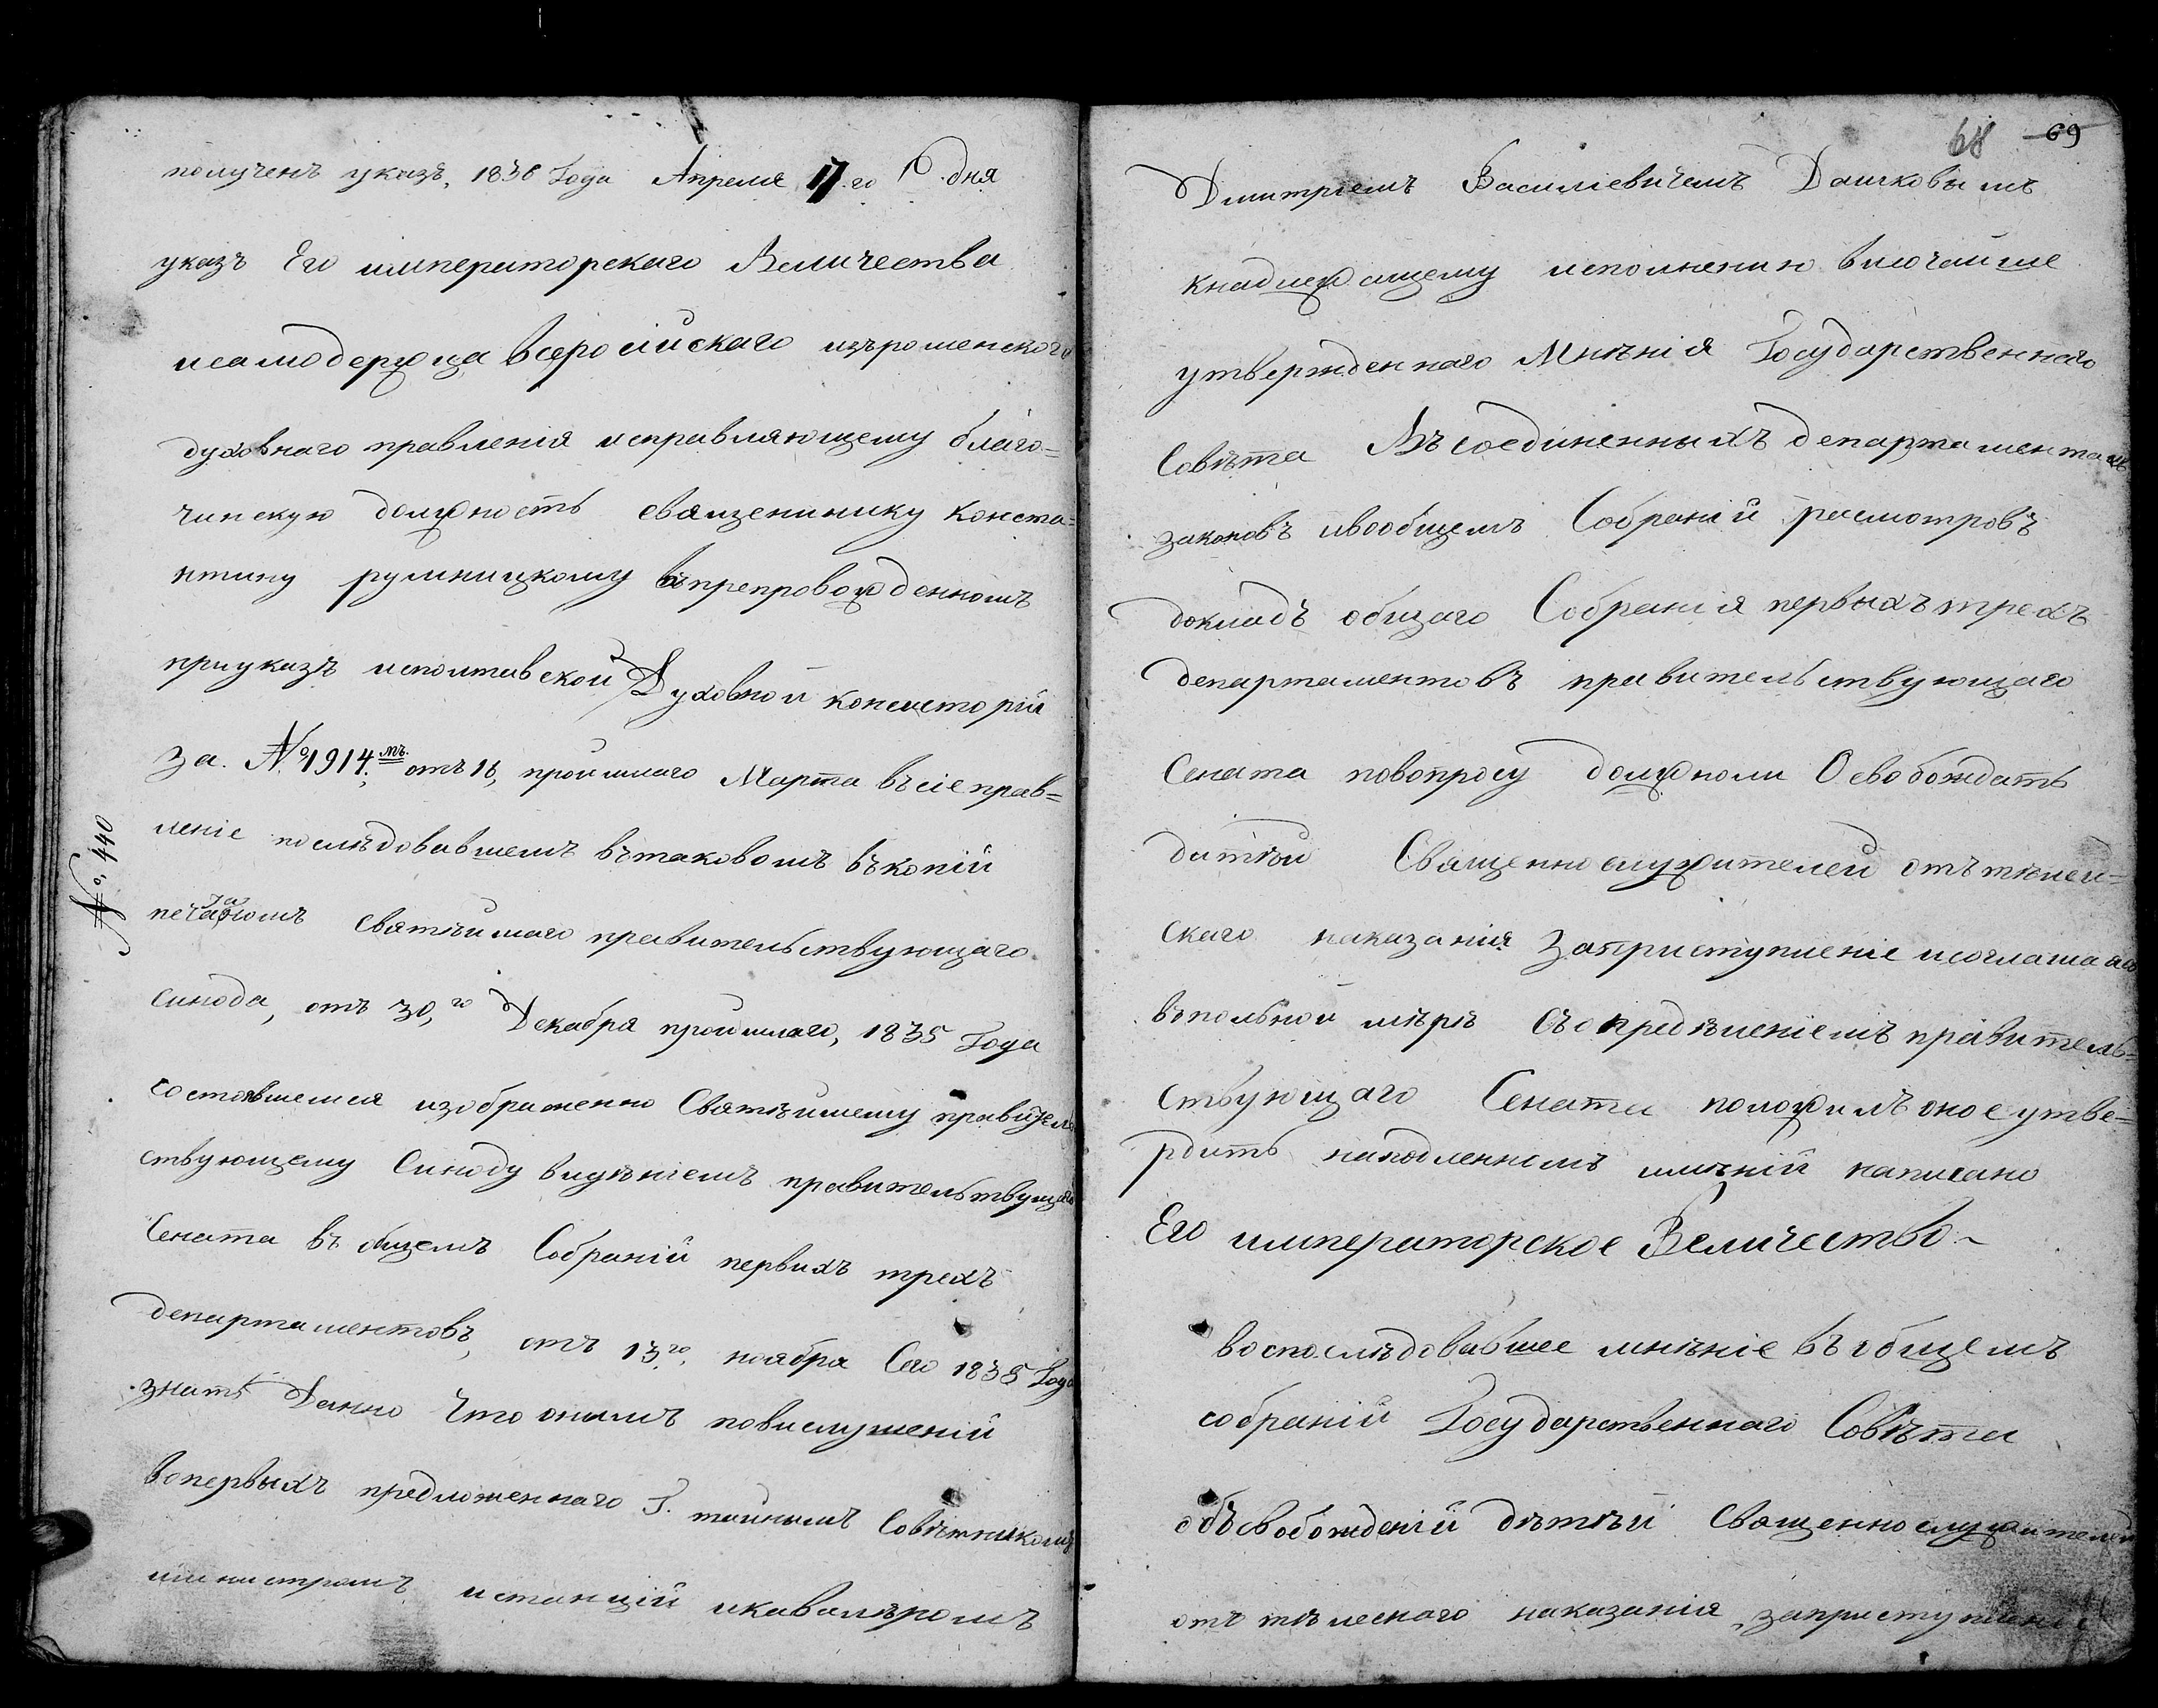 полученъ указъ, 1836 Года Апреля 17.го дня
указъ Его императорскаго Величества
исамодержца всеросійскаго изъроменского
духовнаго правленія исправляющему благо=
чинскую должность священнику конста=
нтину румницкому въпрепровожденномъ
приуказъ исполтавской Духовной консисторій
За. №1914;мъ отъ 16, прошлаго Марта въсіе прав=
леніе последовавшемъ вътаковомъ вѣкопій
№, 440
Святѣйшаго правительствующаго
синода, отъ 30,го Декабря прошлаго, 1835 Года
состоявшемся изображенно Святѣйшему правитель
ствующему Синоду видѣніемъ правительствующаго
Сената въ общемъ Собраній первихъ трехъ
департаментовъ, отъ 13.го ноября Сего 1835 Года
знать Данно Что онимъ повислушеній
вопервыхъ предложеннаго Г. тайнымъ Совѣтникомъ
министромъ истинцій икавалѣромъ
68 69
Дмитріемъ Василіевичемъ Дашковымъ
кнадлежащему исполненію височайше
утвержденнаго Мнѣнія Государственнаго
Совѣта Въсоединенныхъ департаментахъ
законовъ ивообщемъ Собраній росмотровъ
докладъ общаго Собранія первыхъ трехъ
департаментовъ правительствующаго
Сената повопросу должноли Освобождать
дѣтѣй Священнослужителей отъ тѣлеи=
скаго наказанія Заприступленіе исоглашаясь
въпольной мѣрѣ съопредѣленіемъ правитель=
ствующаго Сената положилъ оное утве=
рдить наподленномъ мнѣній написано
Его императорское Величество ~
воспослѣдовавшее мнѣніе въ общемъ
собраній Государственнаго Совѣта
объсвобожденій дѣтѣй Священнослужителей
отъ тѣлеснаго наказанія, заприступленіе